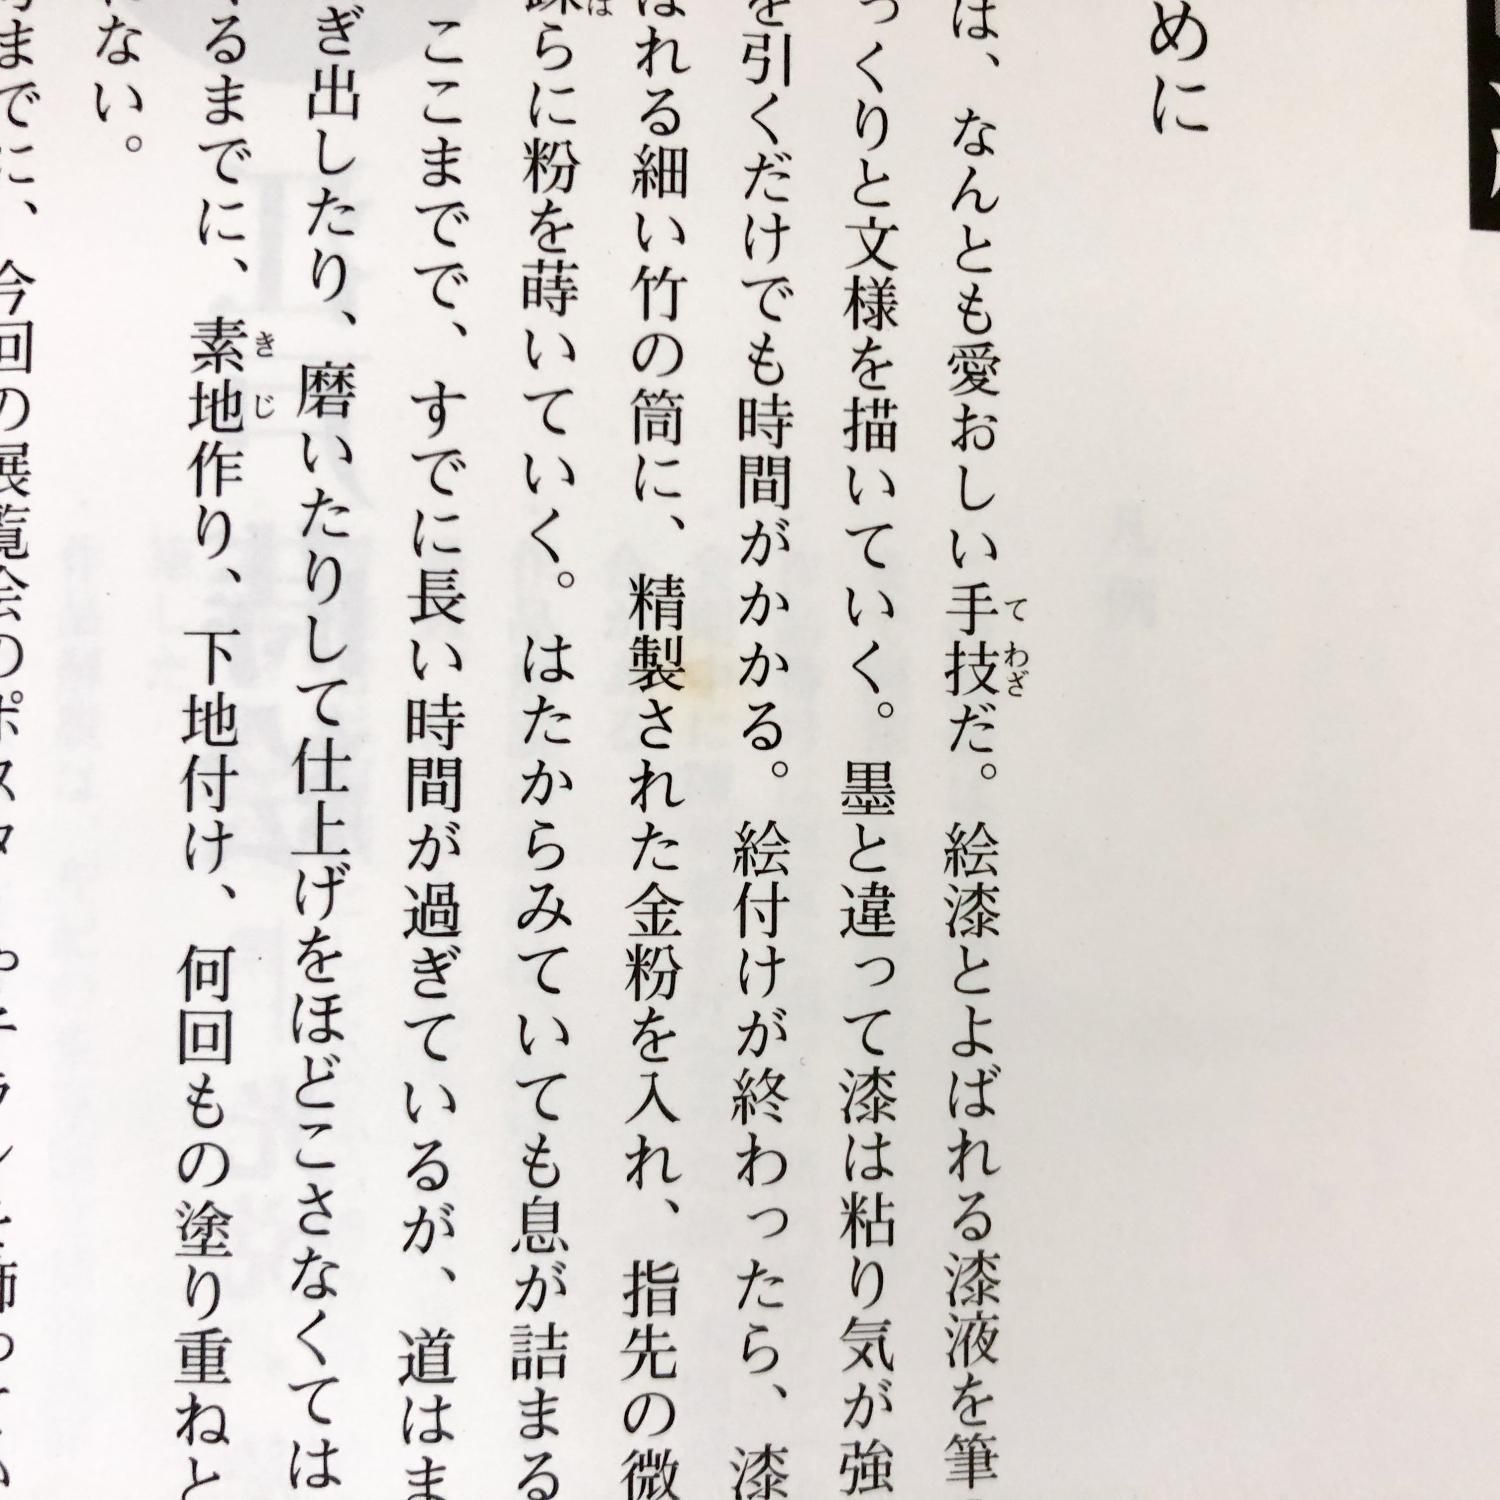 めに
は、なんとも愛おしい手技だ。絵漆とよばれる漆液を筆
っくりと文様を描いていく。墨と違って漆は粘り気が強
を引くだけでも時間がかかる。絵付けが終わったら、漆
ばれる細い竹の筒に、精製された金粉を入れ、指先の微
疎らに粉を蒔いていく。はたからみていても息が詰まる
ここまでで、すでに長い時間が過ぎているが、道はま
ぎ出したり、磨いたりして仕上げをほどこさなくては
るまでに、素地作り、下地付け、何回もの塗り重ねと
ない。
までに、今回の展覧会のポスタ